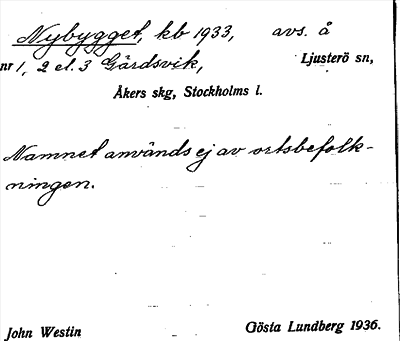 Nybygget, kb 1933, avs. å
nr 1, 2 el. 3 Gärdsvik, Ljusterö sn,
Åkers skg, Stockholms l.
Namnet används ej av ortsbefolk-
ningen.
John Westin Gösta Lundberg 1936.